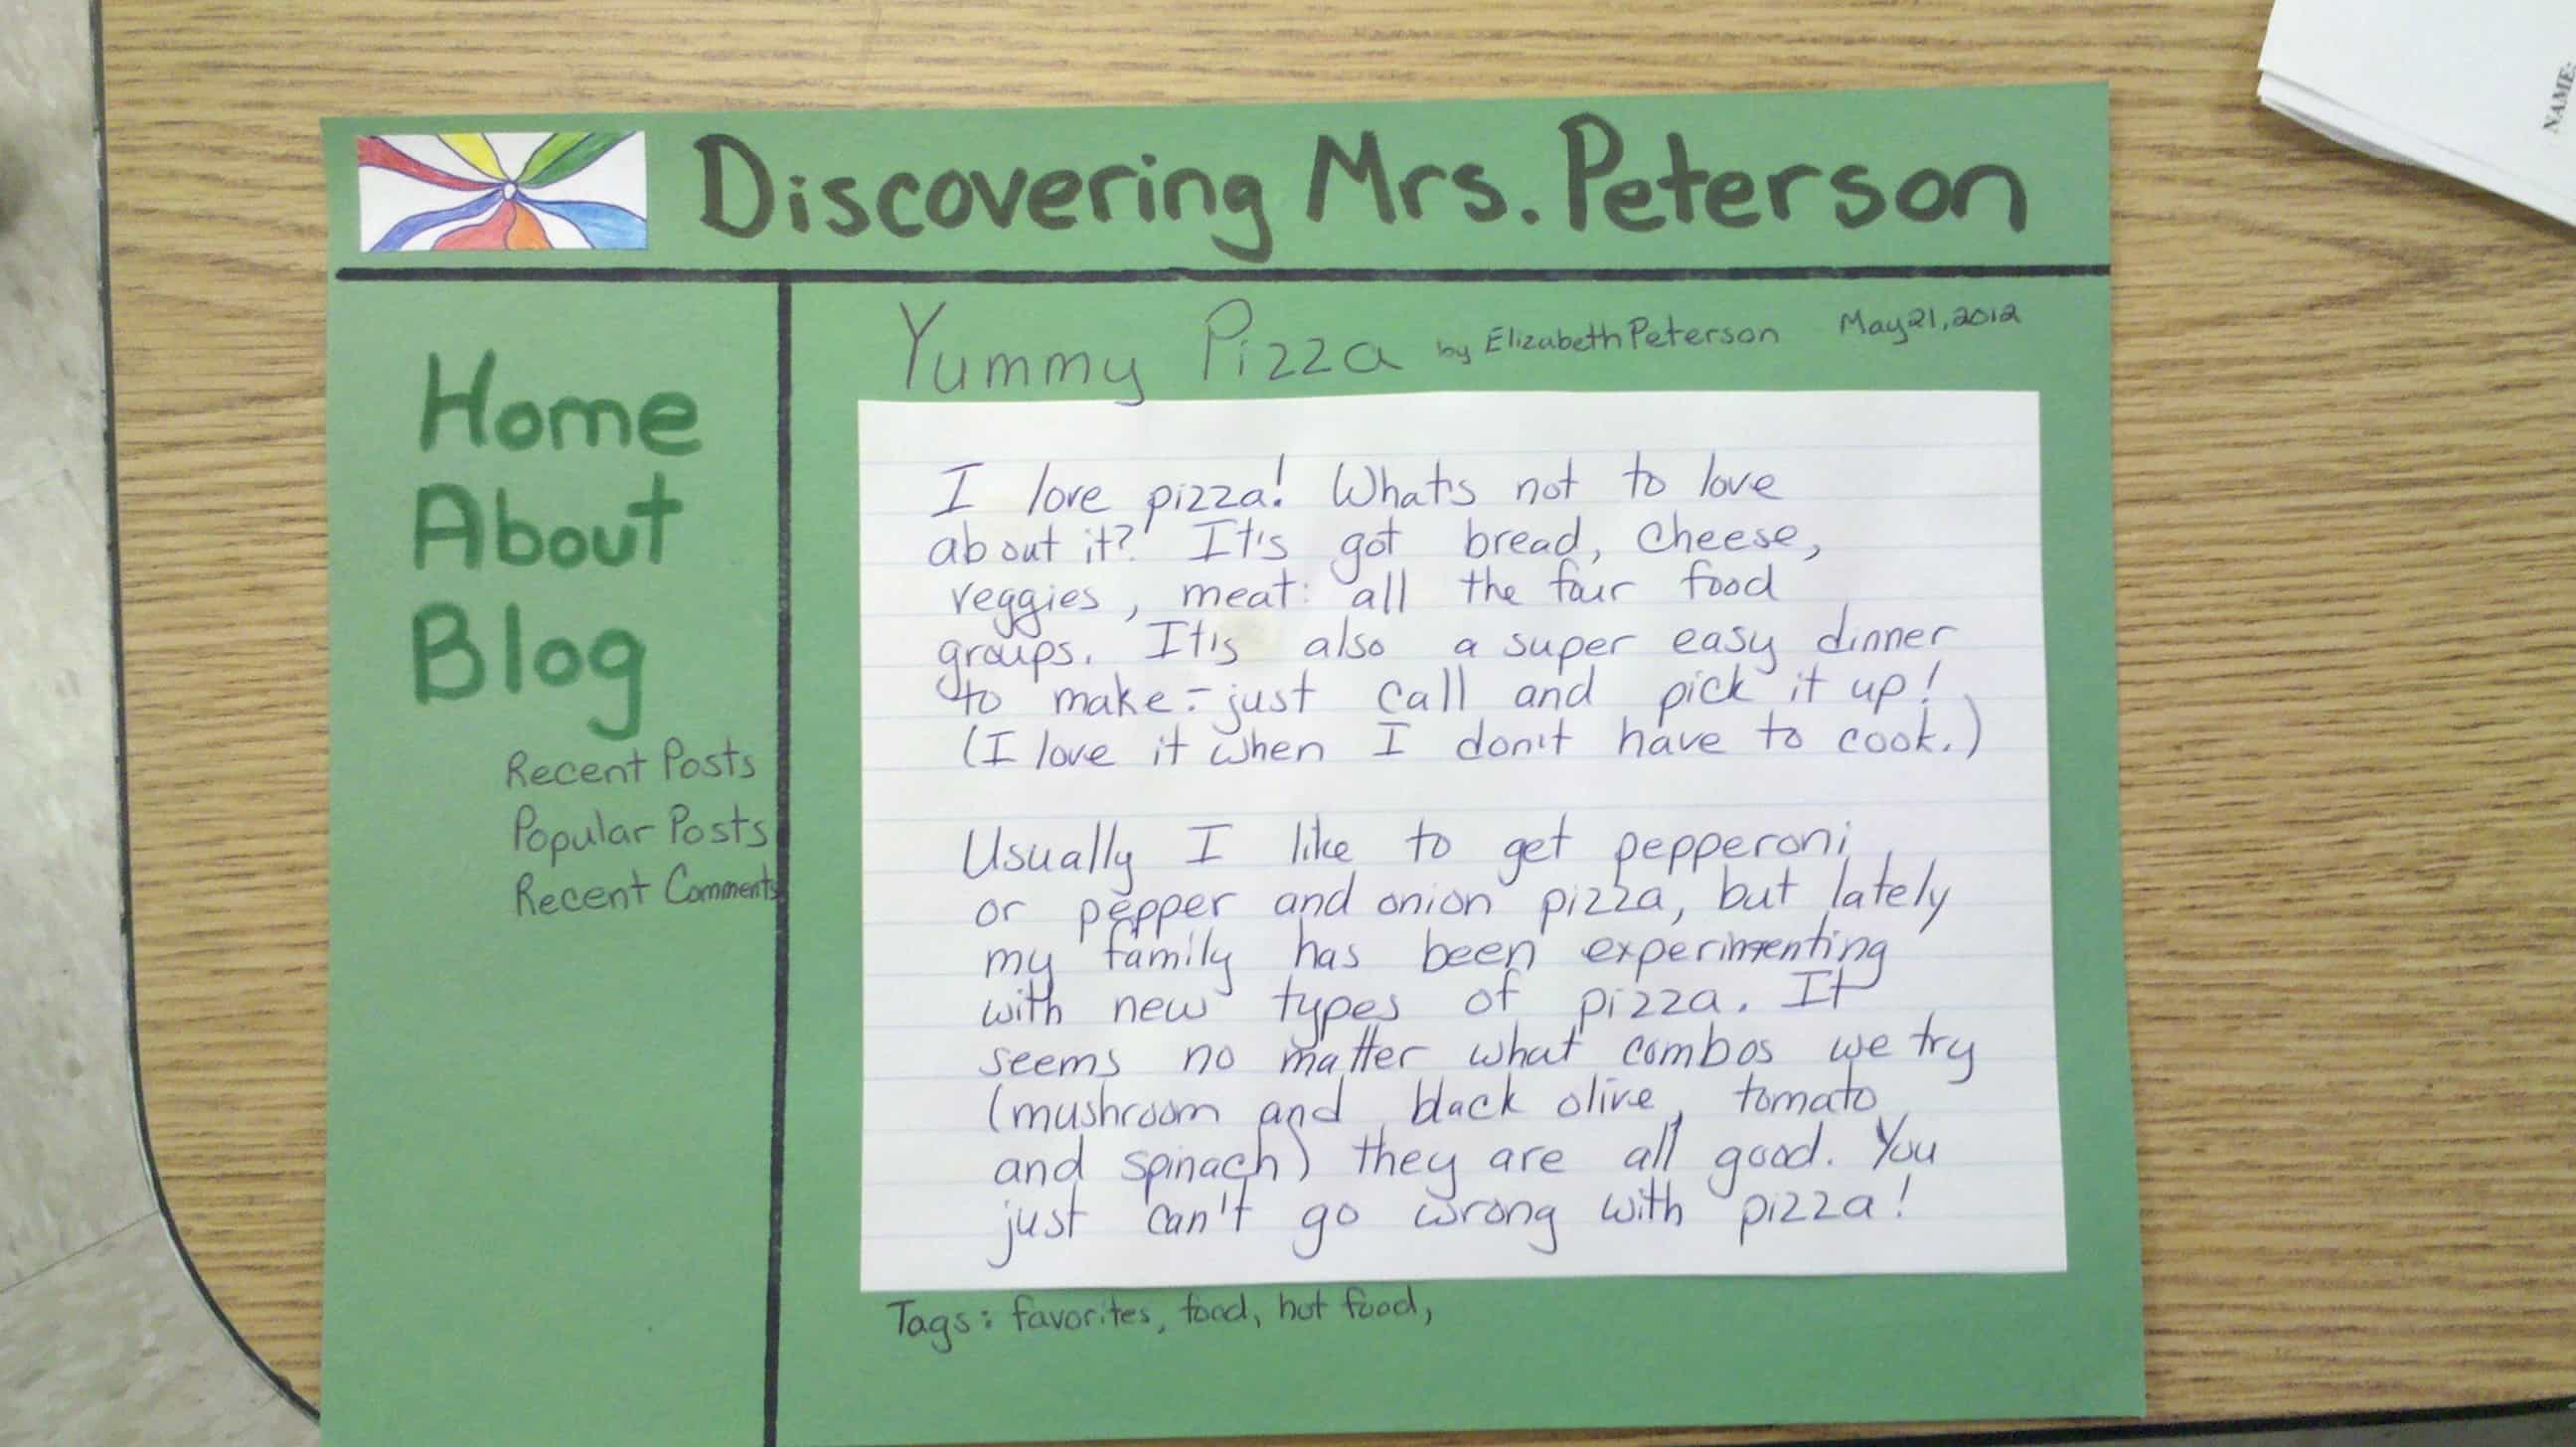 Discovering Mrs. Peterson
Home
About
Blog
Recent Posts
Popular Posts
Recent Comments
Yummy Pizza by Elizabeth Peterson May 21, 2012
I love pizza! What's not to love
about it? It's got bread, cheese,
veggies, meat: all the four food
groups. It's also a super easy dinner
to make - just call and pick it up!
(I love it when I don't have to cook.)
Usually I like to get pepperoni
or pepper and onion pizza, but lately
my family has been experimenting
with new types of pizza. It
seems no matter what combos we try
(mushroom and black olive, tomato
and spinach) they are all good. You
just can't go wrong with pizza!
Tags: favorites, food, hot food,
NAME: